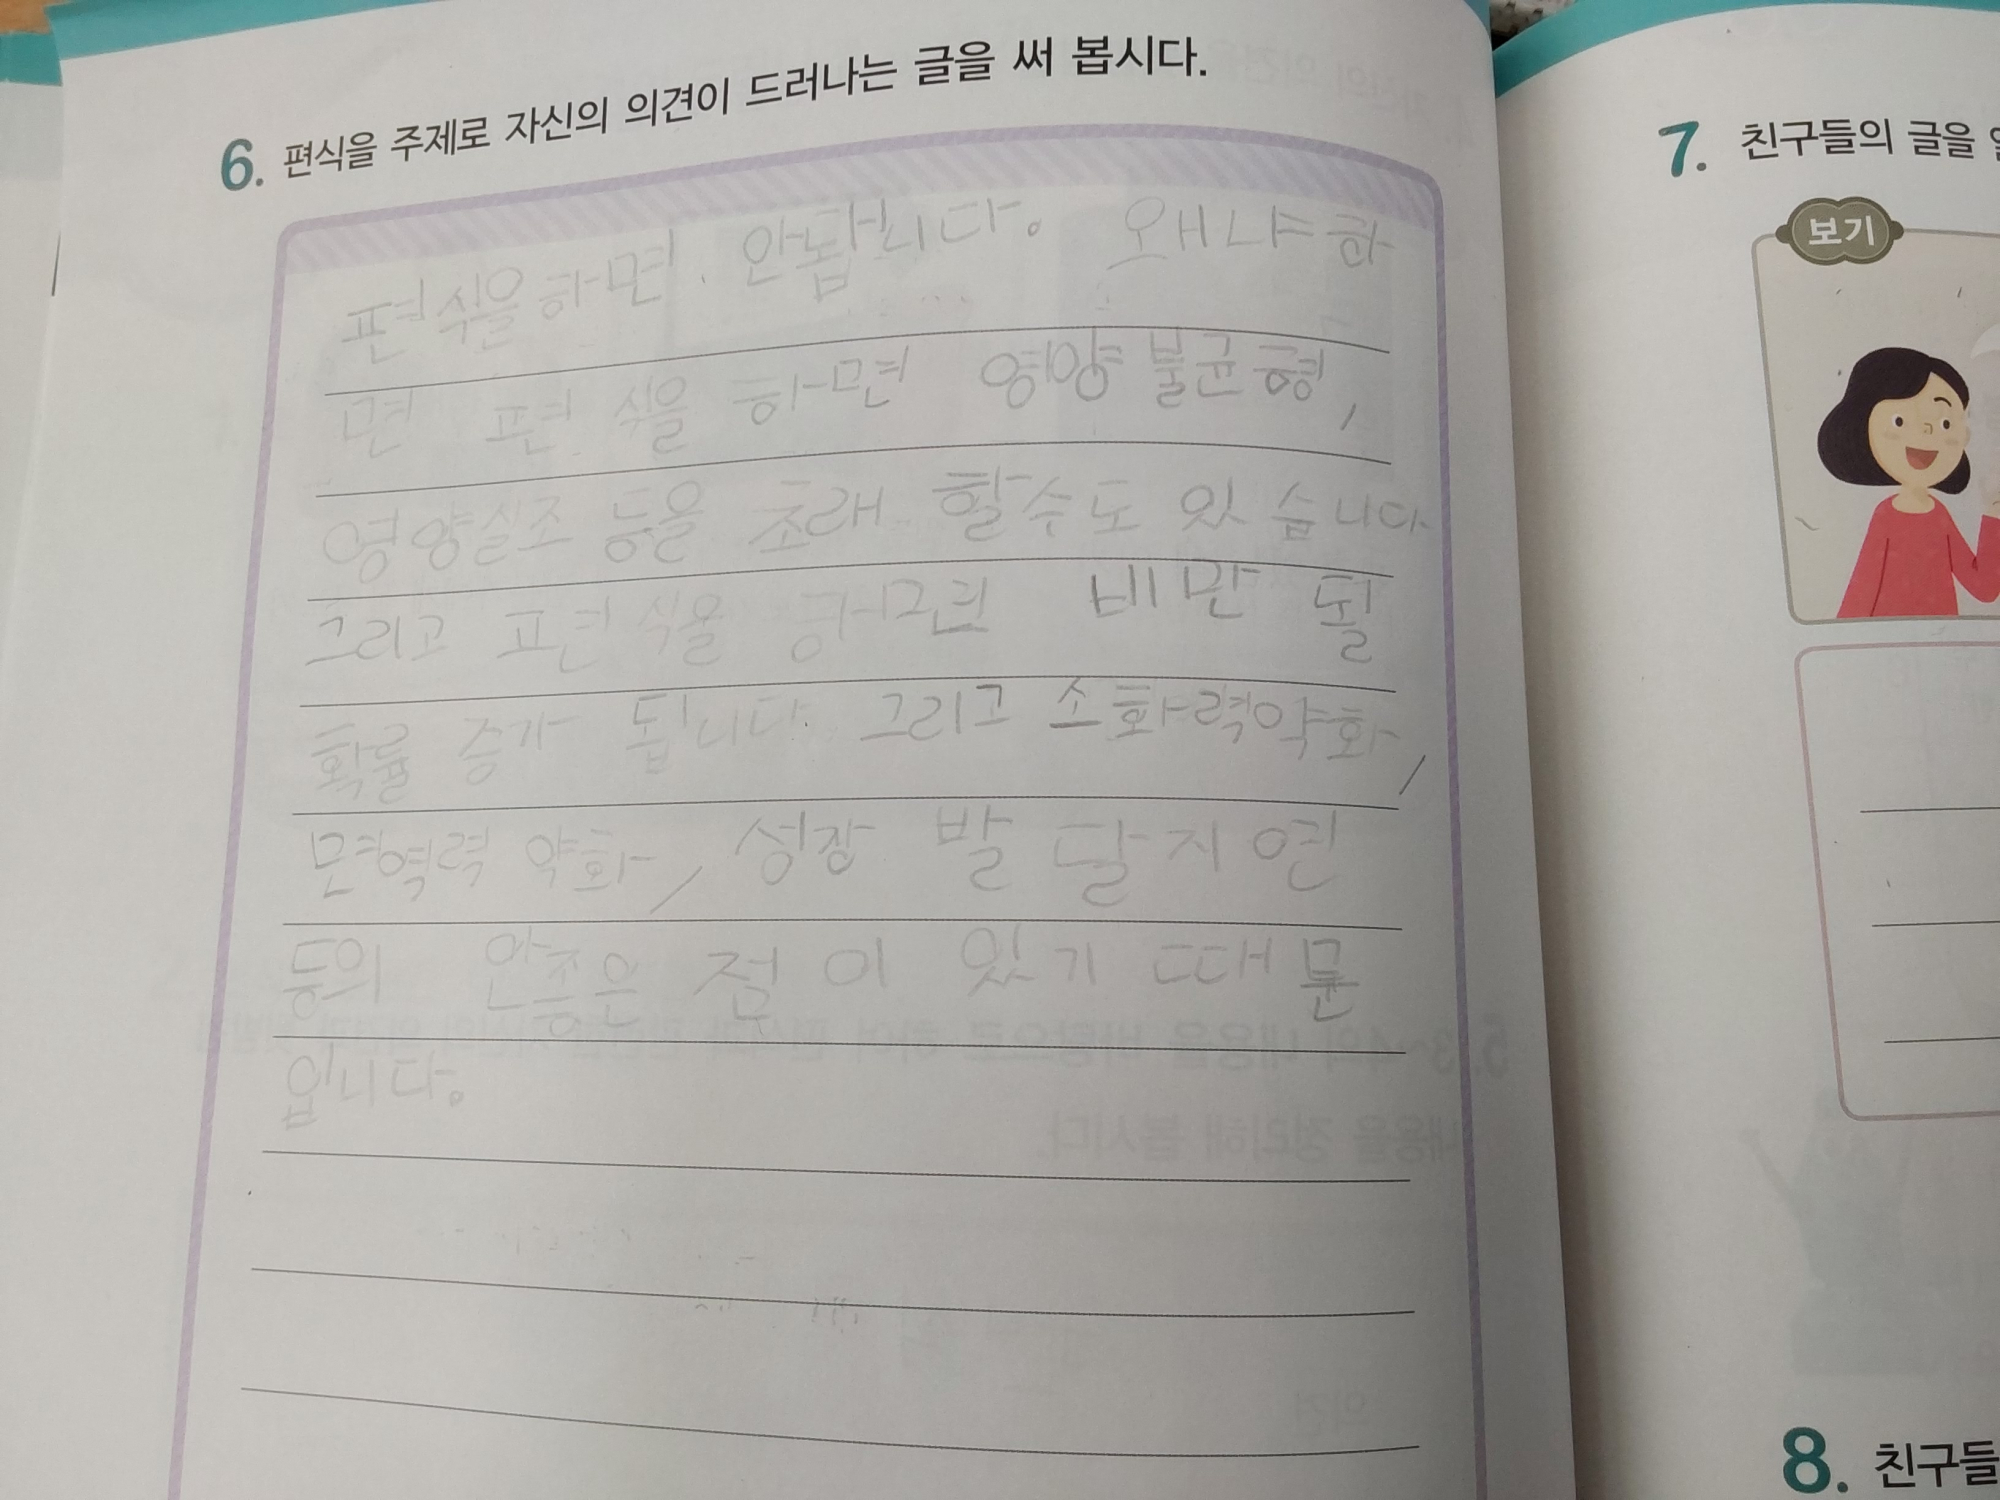 6. 편식을 주제로 자신의 의견이 드러나는 글을 써 봅시다.
편식을하면. 안돕니다. 왜냐하
면 편식을 하면 영양불균형,
영양실조 등을 초래 할수도 있습니다
그리고 편식을 하면 비만 될
확률 증가 됩니다. 그리고 소화력약화,
면역력 약화, 성장 발달지연
등의 안좋은 점이 있기 때문
입니다.
7. 친구들의 글을
보기
8. 친구들